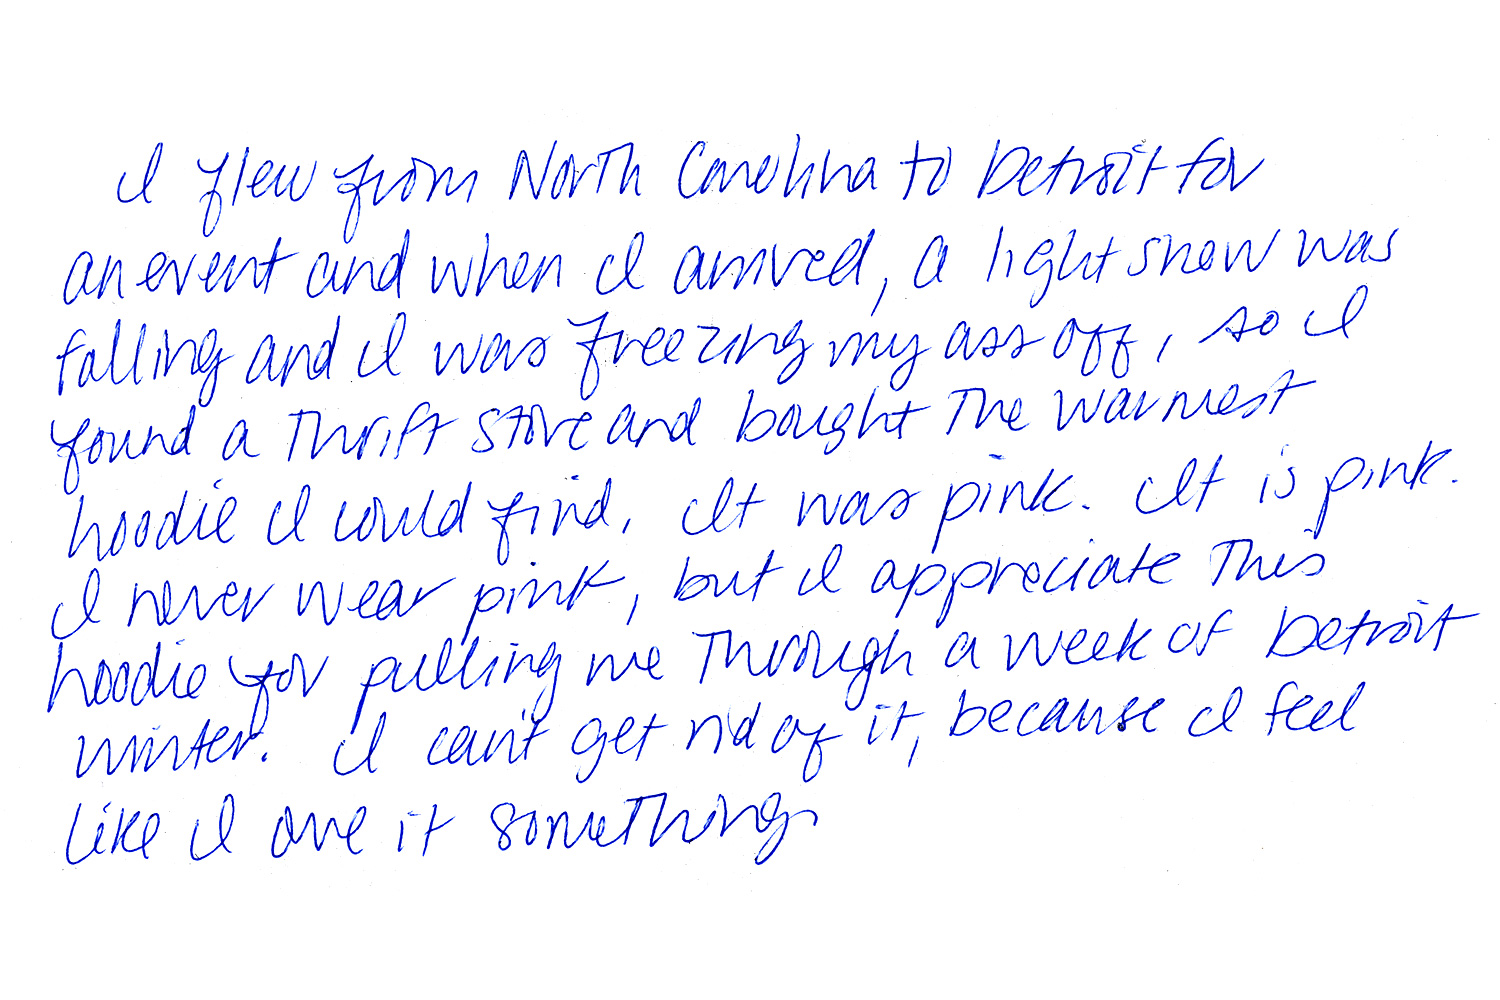 I flew from North Carolina to Detroit for
an event and when I arrived, a light snow was
falling and I was freezing my ass off, so I
found a thrift store and bought the warmest
hoodie I could find. It was pink. It is pink.
I never wear pink, but I appreciate this
hoodie for pulling me through a week of Detroit
winter. I can't get rid of it, because I feel
like I owe it something.